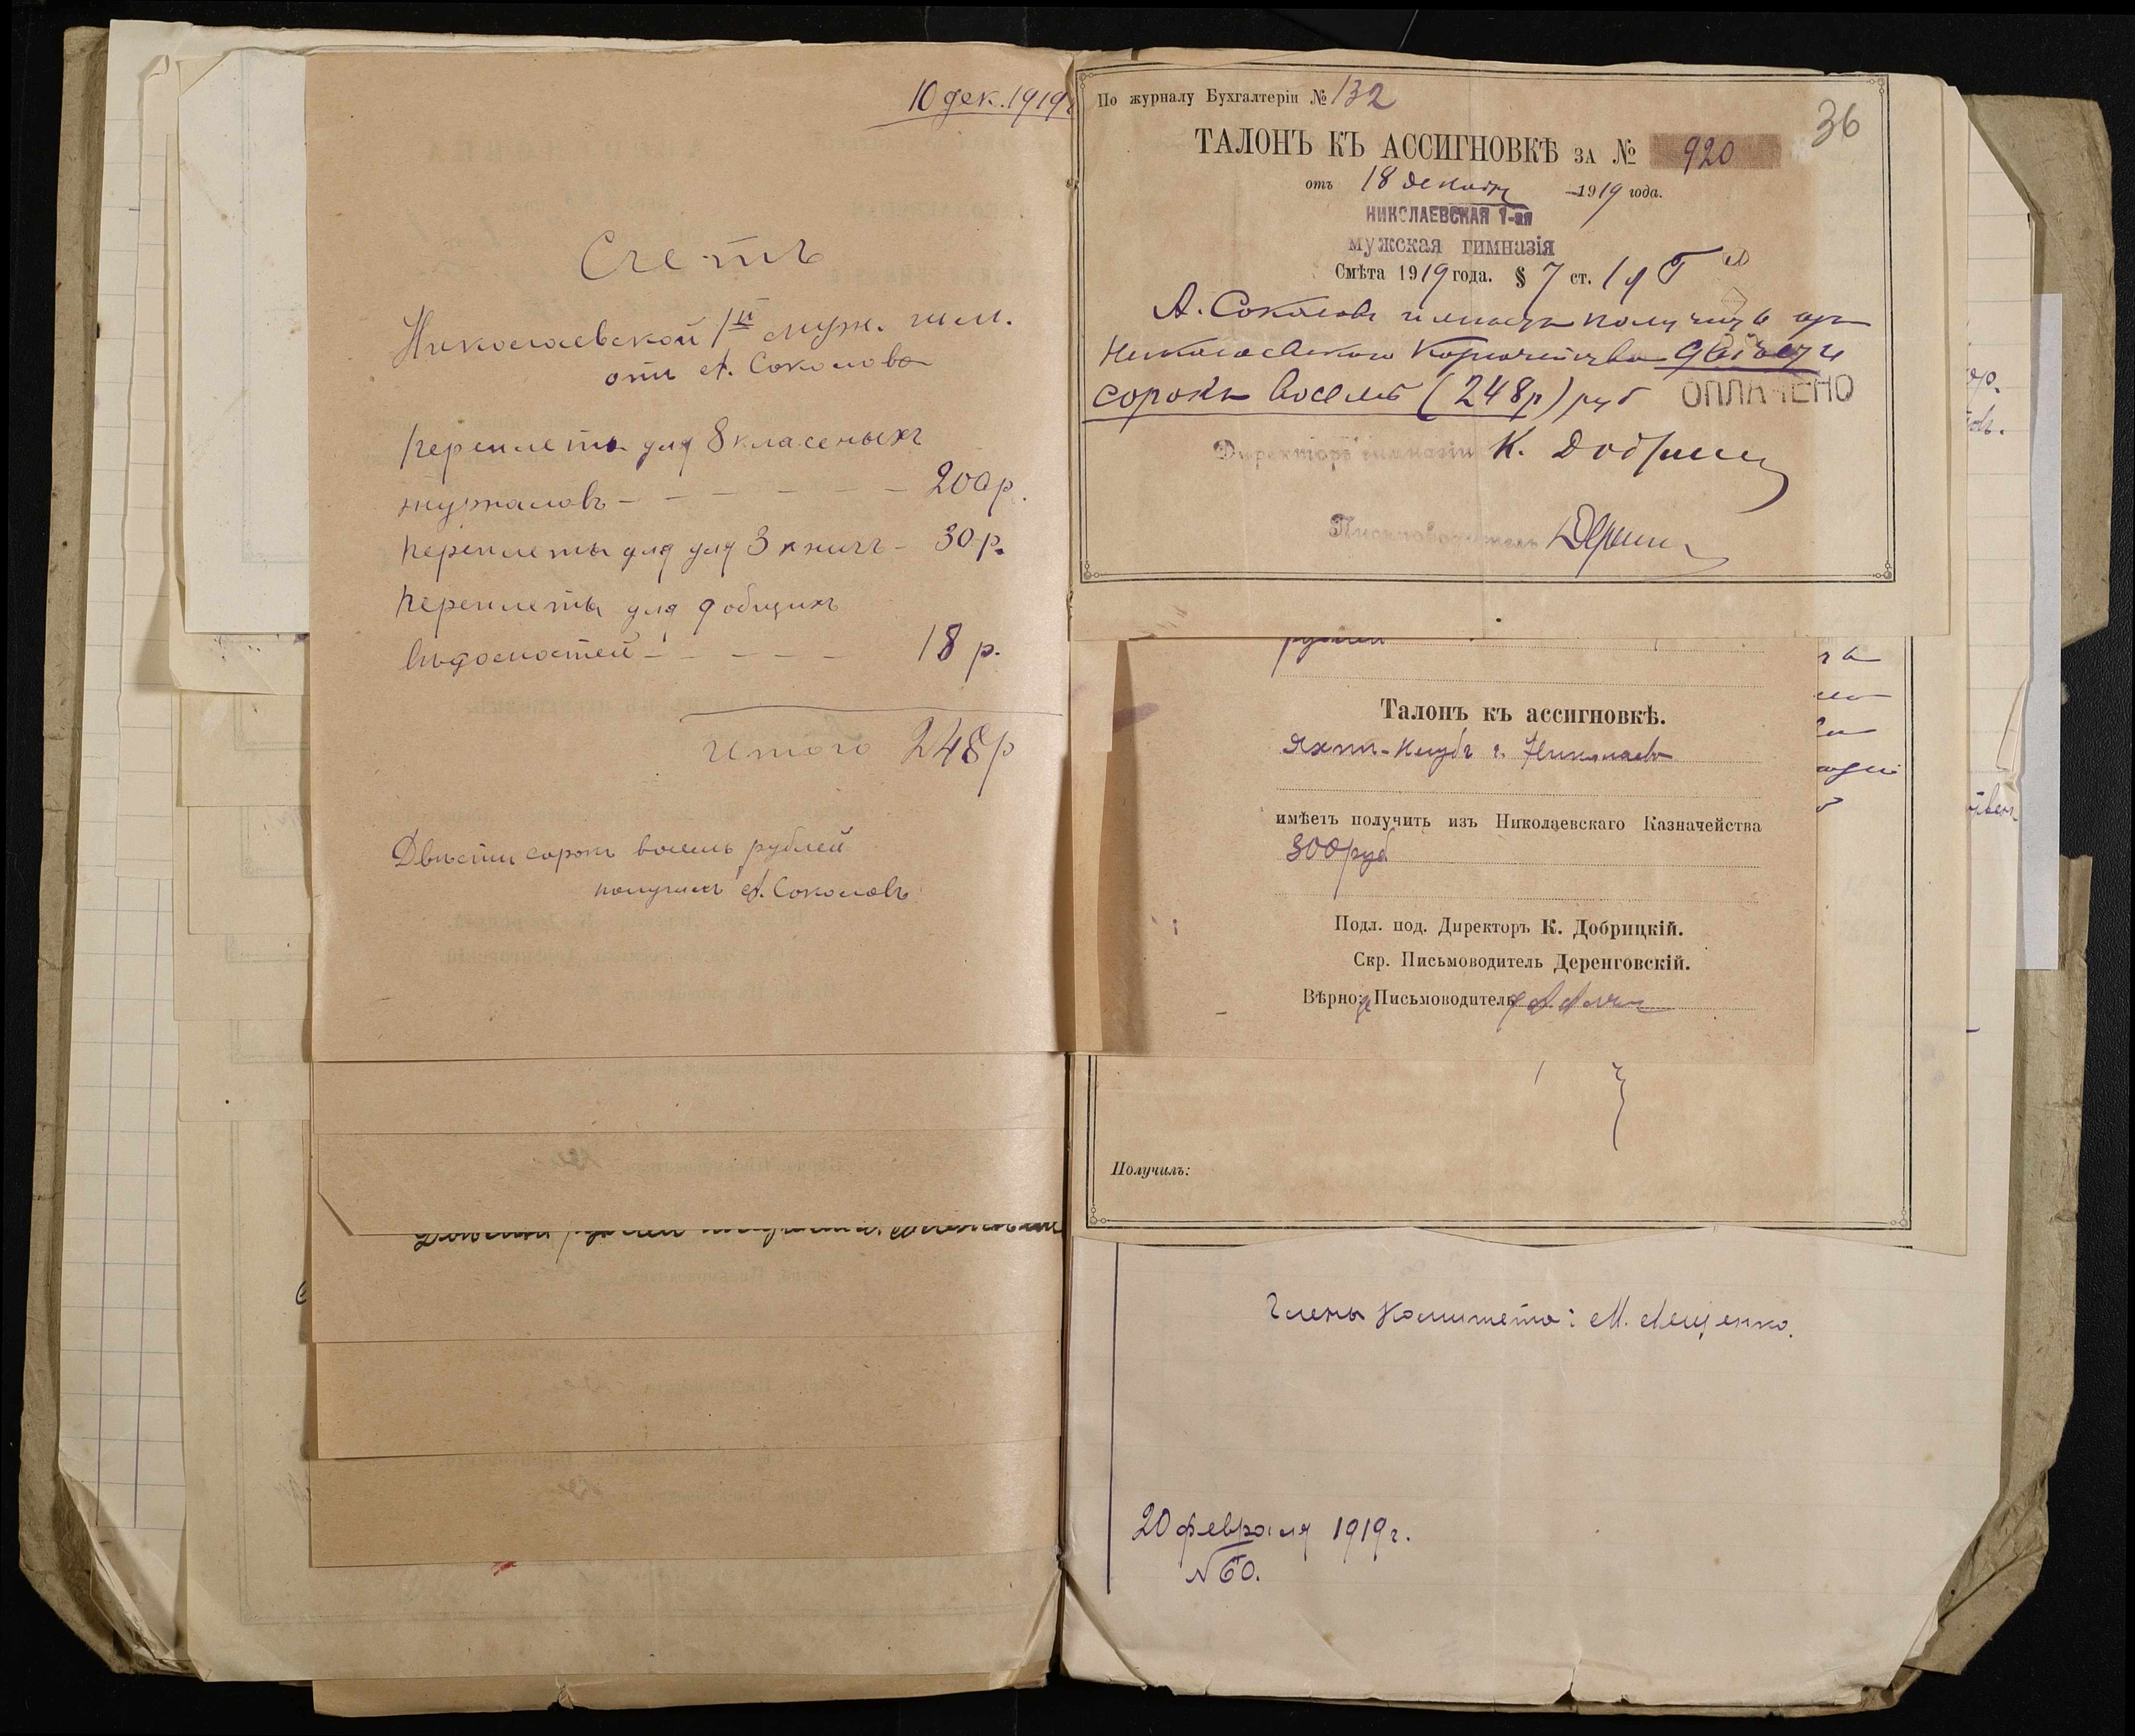 10 дек. 1919г
Счетъ
Николаевской 1й муж. гим.
отъ А. Соколова
Переплеты для 8 класеныхъ
журналовъ - - - - - - 200р.
Переплеты для для 3 книгъ - 30р.
Переплеты для 9 общихъ
вѣдомостей - - - - - 18 р.
Итого 248р
Двѣсти сорокъ восемь рублей
получилъ А. Соколовъ
По журналу Бухгалтеріи № 132
36
ТАЛОНЪ КЪ АССИГНОВКѢ ЗА № 920
отъ 18 декабря 1919 года.
НИКОЛАЕВСКАЯ 1-ая
мужская гимназія
Смѣта 1919 года. § 7 ст. 1
А. Соколовъ имѣетъ получить изъ
Николаевского Казначейства двѣсти
сорокъ восемь (248р) руб
ОПЛАЧЕНО
Директоръ гимназіи К. Добрицкій
Письмоводитель
рублей
Талонъ къ ассигновкѣ.
Яхтъ-Клубъ г. Николаева
имѣетъ получить изъ Николаевскаго Казначейства
300 руб
Подл. под. Директоръ К. Добрицкій.
Скр. Письмоводитель Деренговскій.
Вѣрно: Письмоводитель
Получилъ:
Члены Комитета: М. Лещенко.
20 февраля 1919г.
№ 60.